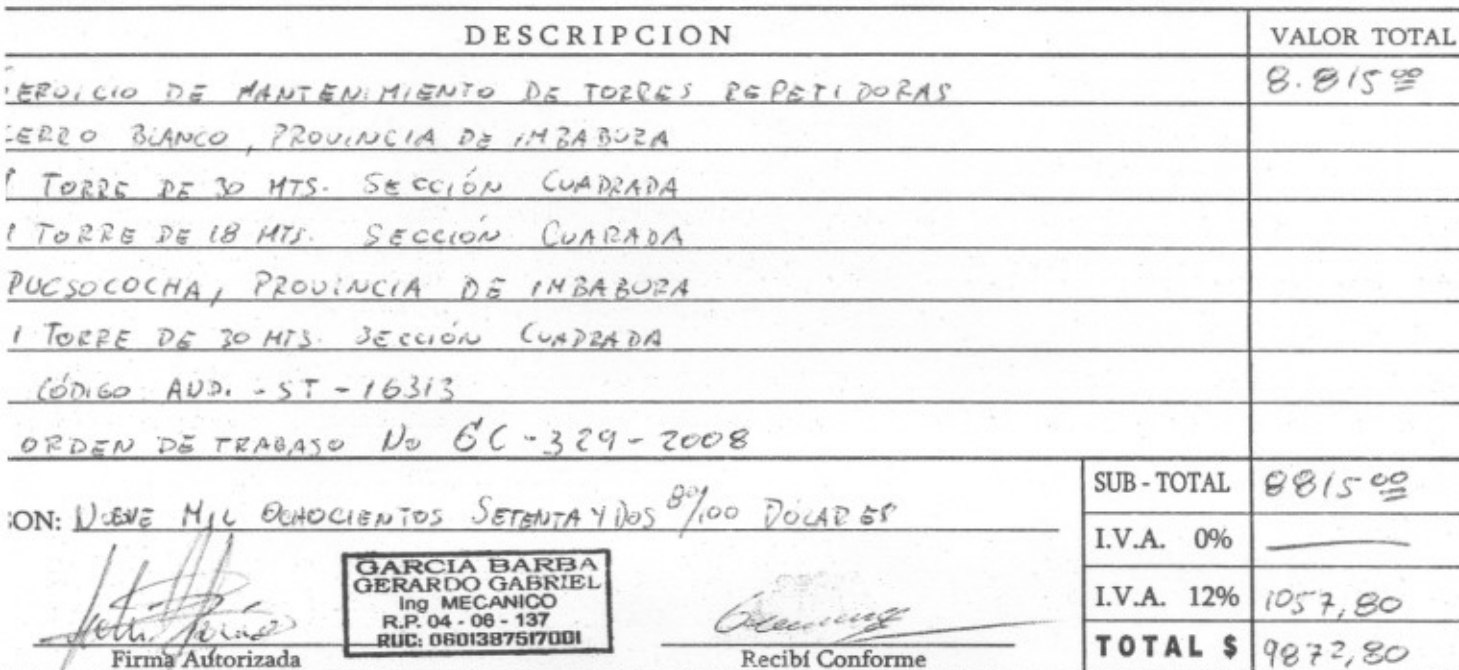 DESCRIPCION VALOR TOTAL
SERVICIO DE MANTENIMIENTO DE TORRES REPETIDORAS 8.815 00
CERRO BLANCO, PROVINCIA DE IMBABURA
1 TORRE DE 30 MTS. SECCIÓN CUADRADA
1 TORRE DE 18 MTS. SECCION CUARADA
PUCSOCOCHA, PROVINCIA DE IMBABURA
1 TORRE DE 30 MTS. SECCIÓN CUADRADA
CÓDIGO AUD. - ST - 16313
ORDEN DE TRABAJO No GC - 329 - 2008
SUB - TOTAL 8815 00
SON: NUEVE MIL OCHOCIENTOS SETENTA Y DOS 80/100 DOLARES
I.V.A. 0% —
GARCIA BARBA
GERARDO GABRIEL
Ing MECANICO
R.P. 04 - 06 - 137
RUC: 0601387517001
I.V.A. 12% 1057,80
Firma Autorizada Recibí Conforme TOTAL $ 9872,80